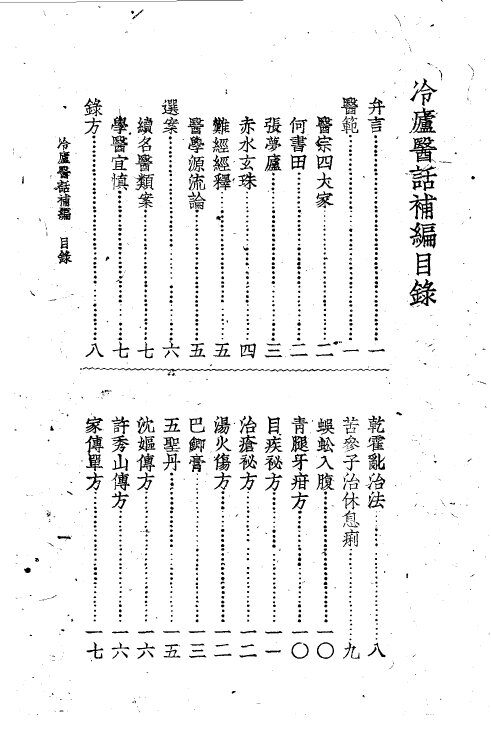 冷廬醫話補編目錄
弁言……一
醫範……一
醫宗四大家……二
何書田……二
張夢廬……三
赤水玄珠……四
難經經釋……五
醫學源流論……五
選案……六
續名醫類案……七
學醫宜慎……七
錄方……八
乾霍亂治法……八
苦參子治休息痢……九
蜈蚣入腹……一〇
青腿牙疳方……一〇
目疾秘方……一一
治瘡秘方……一二
湯火傷方……一二
巴鯽膏……一三
五聖丹……一五
沈嫗傳方……一六
許秀山傳方……一六
家傳單方……一七
冷廬醫話補編 目錄
一